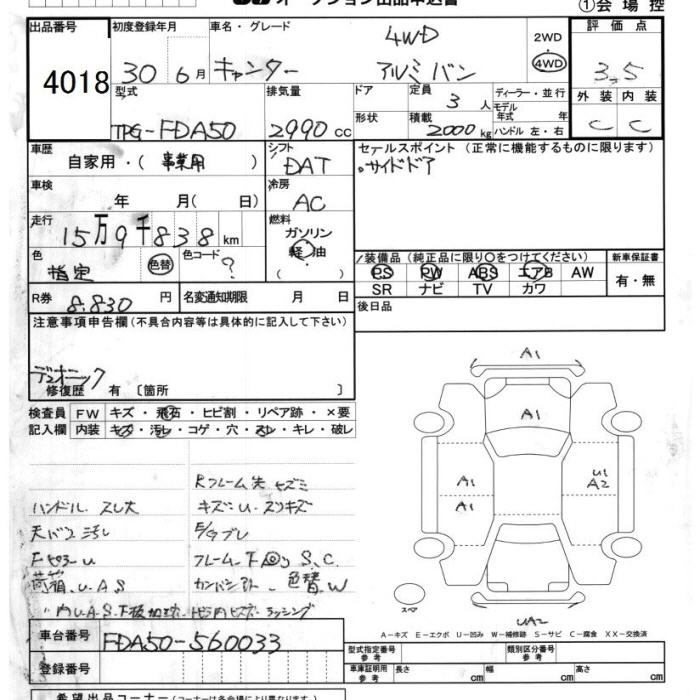 オークション出品申込書 ①会場控
出品番号 4018
初度登録年月 30 6月
車名・グレード 4WD
キャンター アルミバン
2WD
4WD
評価点 3.5
外装 内装
C C
型式 TPG-FDA50
排気量 2990 cc
ドア
形状
定員 3 人
積載 2000 kg
ディーラー・並行
モデル年式 年式
ハンドル 左・右
車歴 自家用・(事業用)
シフト DAT
セールスポイント (正常に機能するものに限ります)
・サイドドア
車検 年 月(日)
冷房 AC
走行 15万9千838 km
燃料 ガソリン
軽油
( )
色 指定 色替
色コード ?
装備品 (純正品に限り○をつけてください)
PS PW ABS エアB AW
SR ナビ TV カワ
新車保証書
有・無
R券 8,830 円
名変通知期限 月 日
後日品
注意事項申告欄(不具合内容等は具体的に記入して下さい)
デュオニック
修復歴 有 〔箇所 〕
検査員 FW キズ・飛石・ヒビ割・リペア跡・×要
記入欄 内装 キズ・汚レ・コゲ・穴・スレ・キレ・破レ
ハンドル スレ大
キズ・U・スリキズ
フレーム下回り S.C.
色替 W
荷箱 U.A.S
A1
A1
A1
A1
U1
A2
UA2
スペア
A-キズ E-エクボ U-凹み W-補修跡 S-サビ C-腐食 XX-交換済
車台番号 FDA50-560033
登録番号
型式指定番号 参考
類別区分番号 参考
車庫証明用 参考 長さ cm 幅 cm 高さ cm
希望出品コーナー